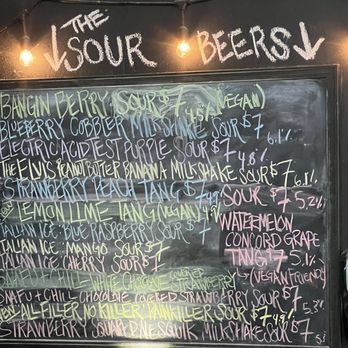 THE
SOUR BEERS
BANGIN BERRY SOUR $7 4.5% (VEGAN)
BLUEBERRY COBBLER MILKSHAKE SOUR $7 6.1%
ELECTRIC ACID TEST PURPLE SOUR $7 4.8%
THE ELVIS PEANUT BUTTER BANANA MILKSHAKE SOUR $7 6.1%
STRAWBERRY PEACH TANG $7
LEMON LIME TANG (VEGAN)
ITALIAN ICE: BLUE RASPBERRY SOUR $7
ITALIAN ICE: MANGO SOUR $7
ITALIAN ICE: CHERRY SOUR $7
WHITE CHOCOLATE COVERED STRAWBERRY
SNAFU + CHILL CHOCOLATE COVERED STRAWBERRY SOUR $7 5.3%
ALL FILLER NO KILLER PAINKILLER SOUR $7 4.9%
STRAWBERRY SQUARED NESQUIK MILKSHAKE SOUR $7
SOUR $7 5.2%
WATERMELON
CONCORD GRAPE
TANG $7 5.1%
(VEGAN FRIENDLY)